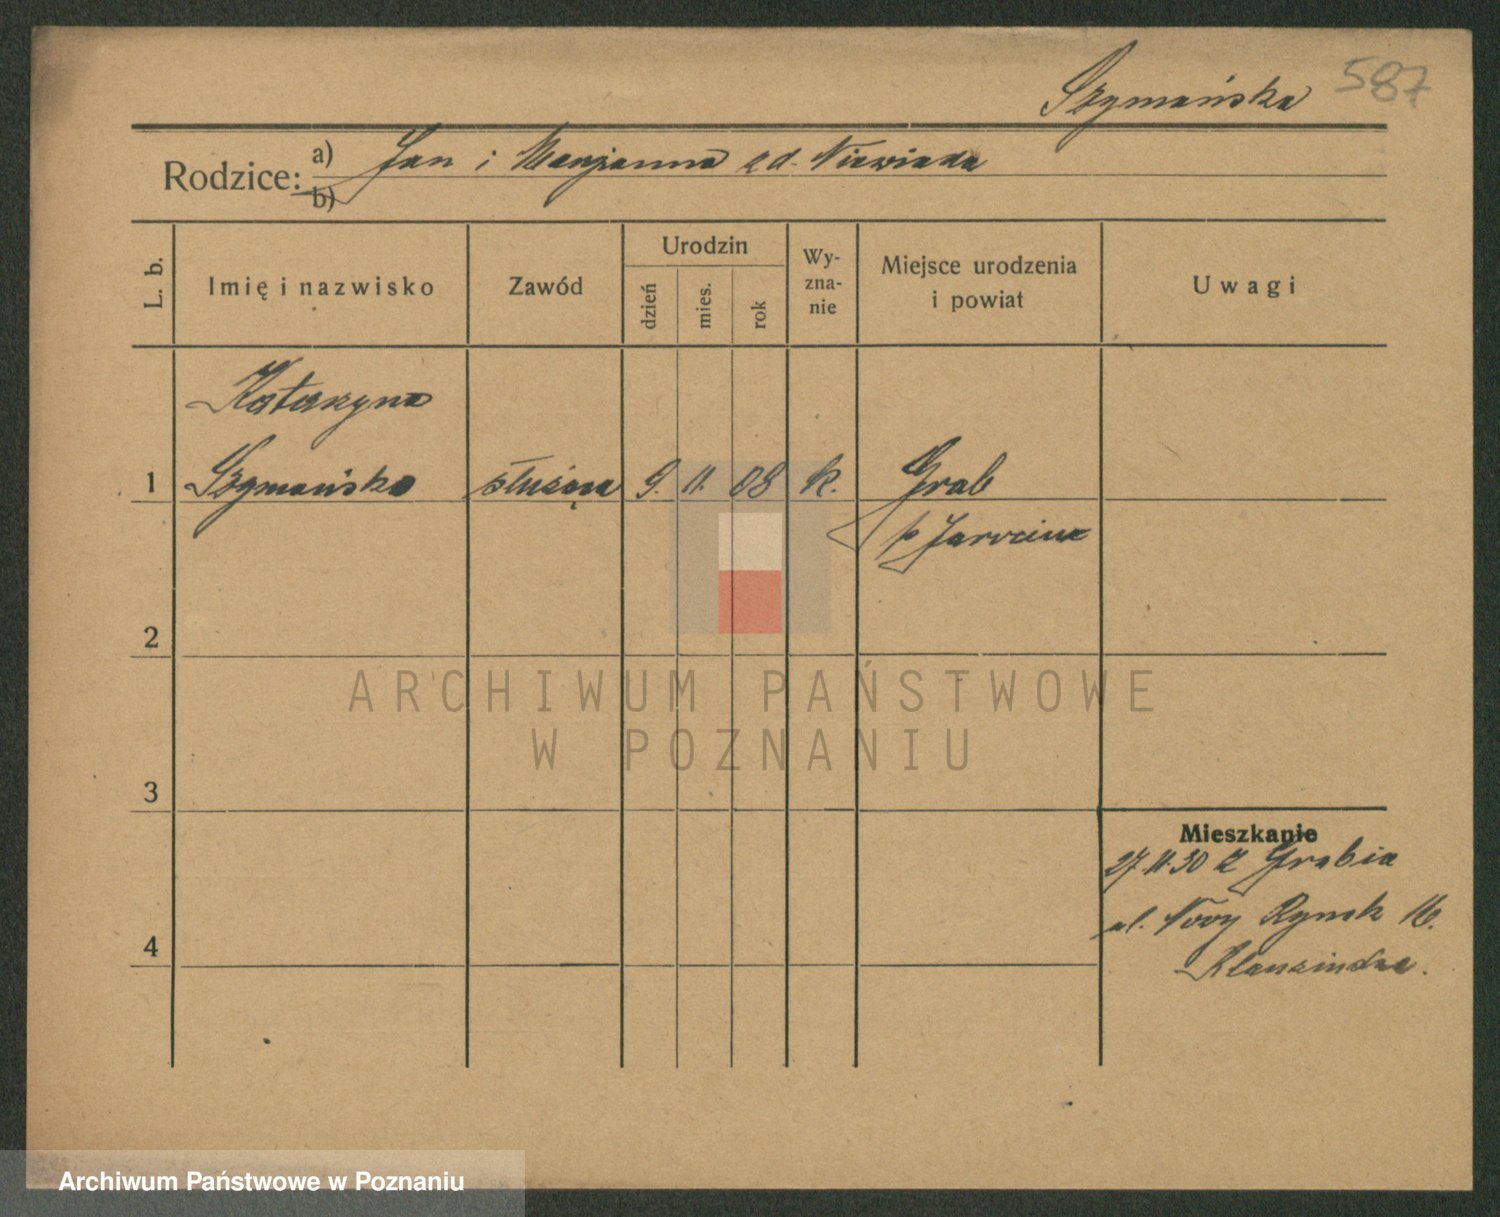 Szymańska 587
Rodzice: a) Jan i Marjanna zd. Niewiada
b)
L. b. Imię i nazwisko Zawód Urodzin dzień mies. rok Wyznanie Miejsce urodzenia i powiat Uwagi
Katarzyna
1 Szymańska służąca 9. 11. 08 k. Grab
p Jarocin
2
ARCHIWUM PAŃSTWOWE
W POZNANIU
3
Mieszkanie
27.11.30 z Grabia
ul. Nowy Rynek 16.
4
Archiwum Państwowe w Poznaniu